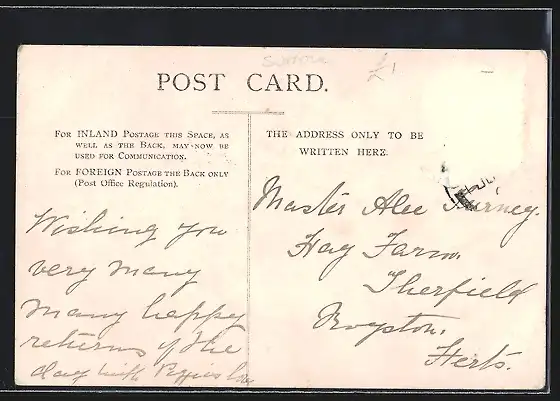 POST CARD.
FOR INLAND POSTAGE THIS SPACE, AS
WELL AS THE BACK, MAY NOW BE
USED FOR COMMUNICATION.
FOR FOREIGN POSTAGE THE BACK ONLY
(Post Office Regulation).
Wishing you
very many
many happy
returns of the
day with
THE ADDRESS ONLY TO BE
WRITTEN HERE.
Master Alec
Hay Farm.
Therfield
Royston.
Herts.